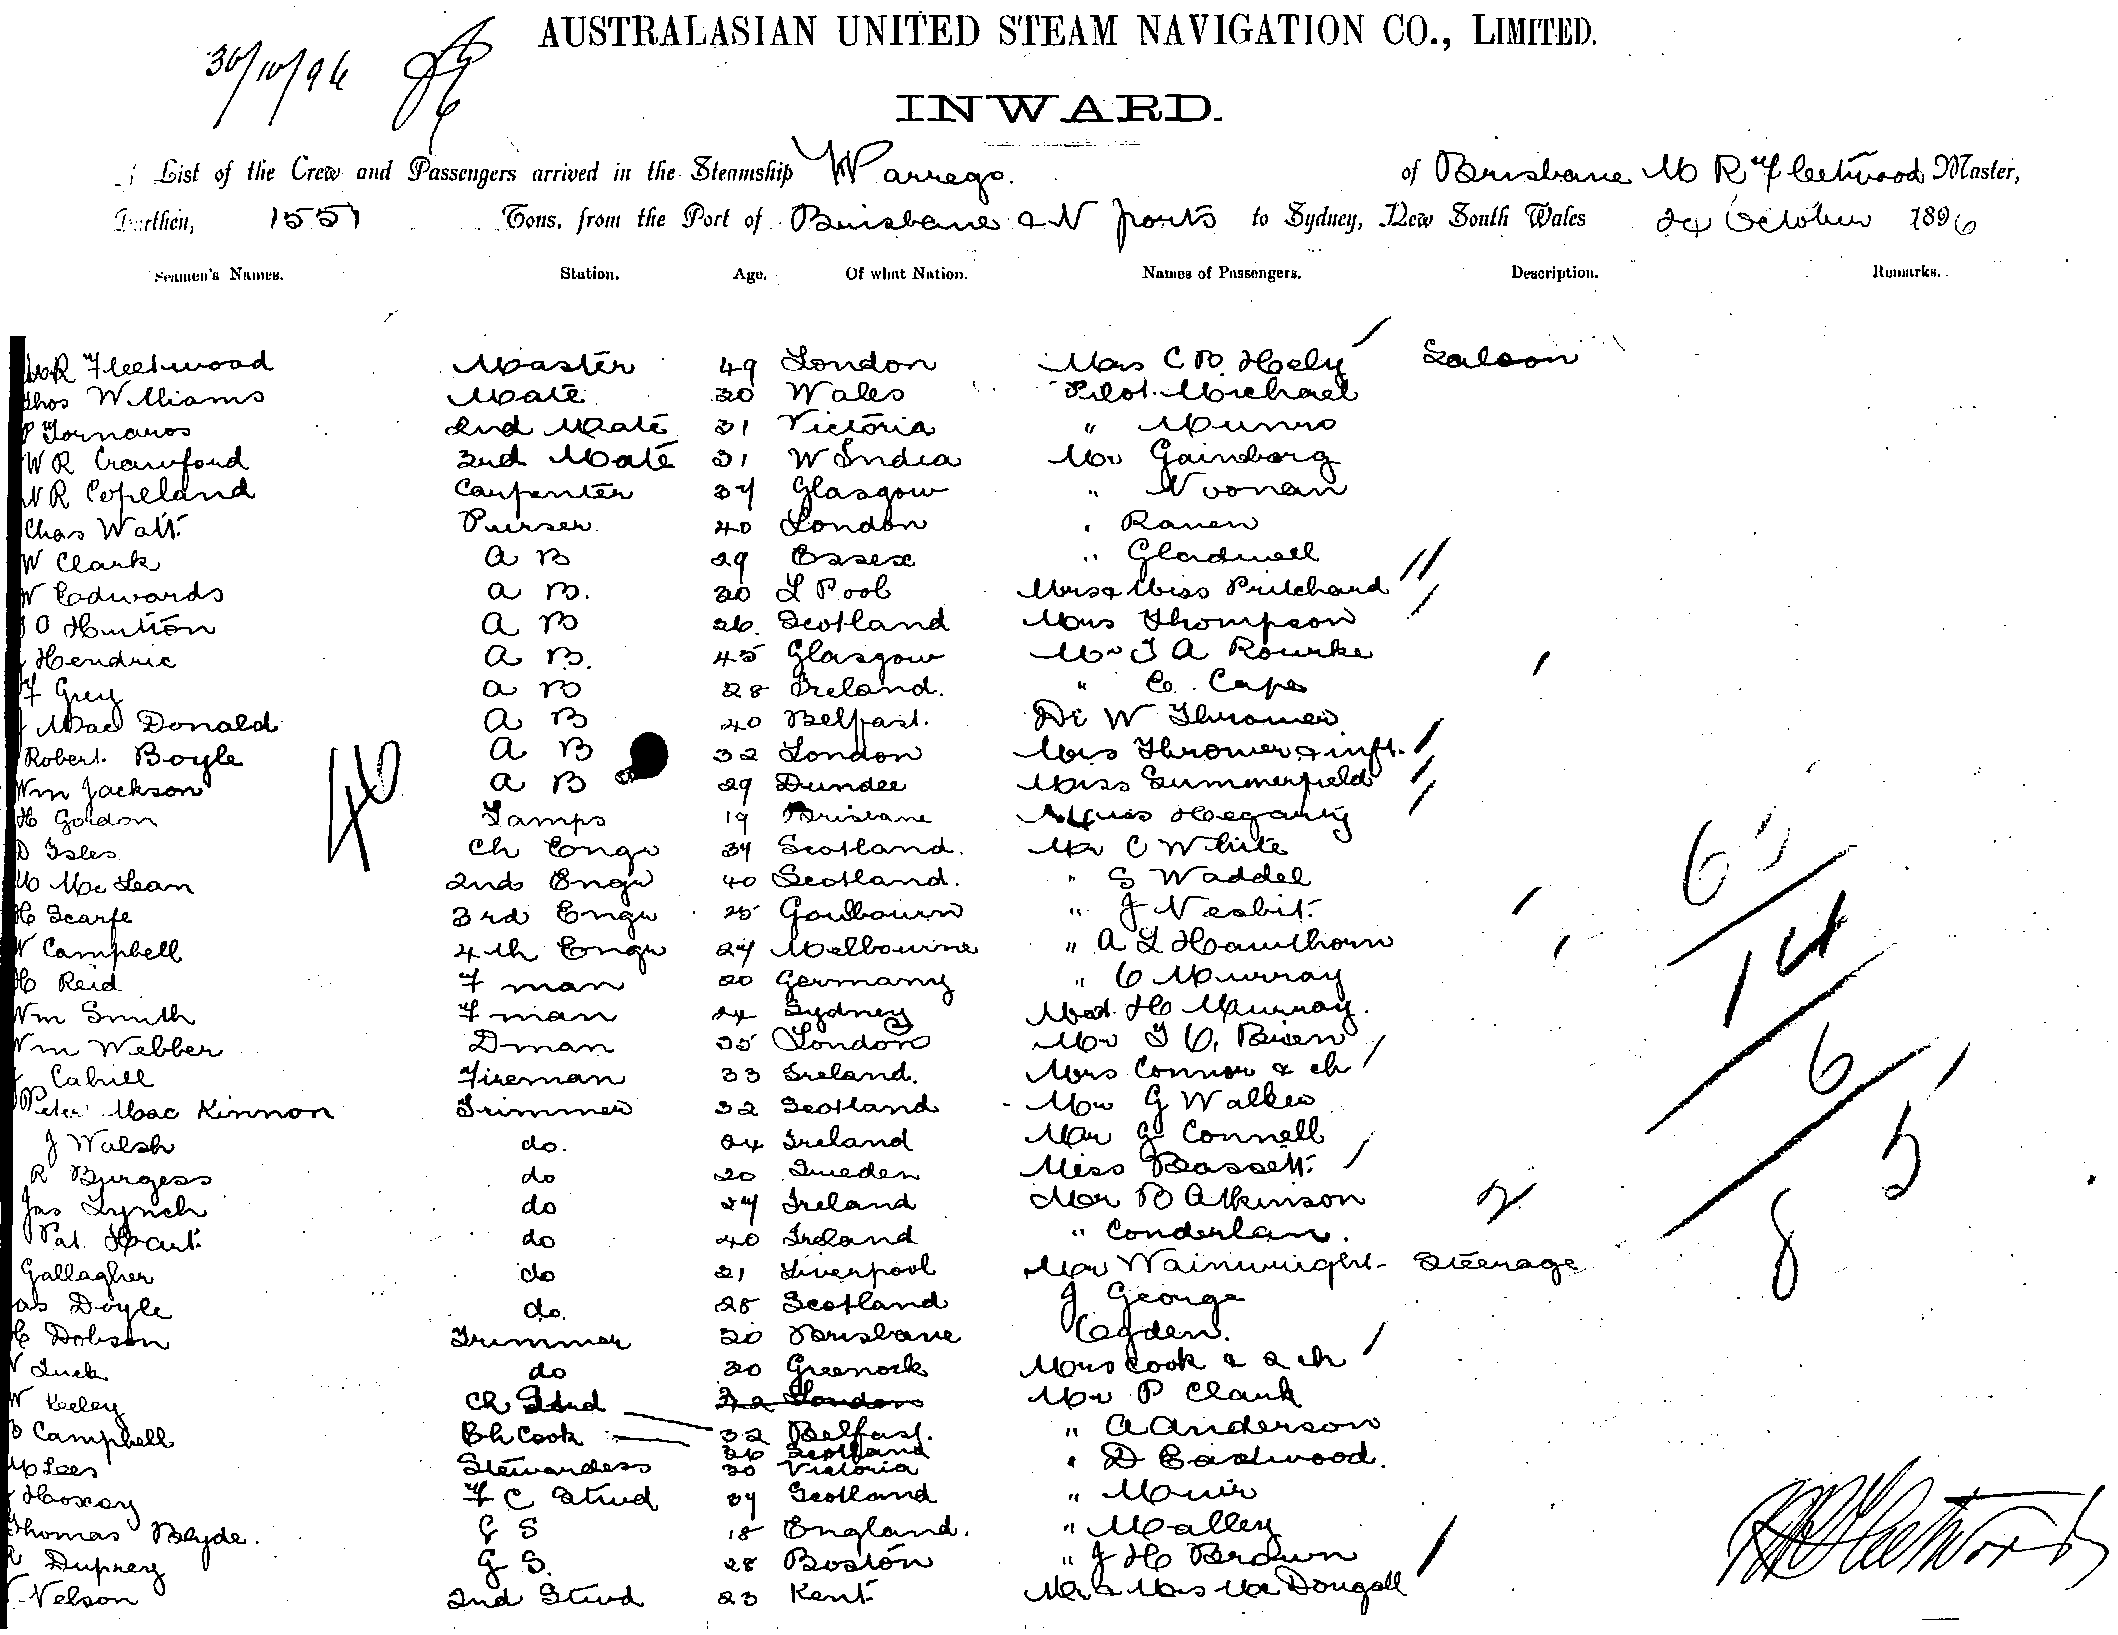 AUSTRALASIAN UNITED STEAM NAVIGATION CO., LIMITED.
30/10/96
INWARD.
List of the Crew and Passengers arrived in the Steamship Warrego. of Brisbane M R Fleetwood Master,
Burthen, 1551 Tons, from the Port of Brisbane & N ports to Sydney, New South Wales 24 October 1896
Seamen's Names. Station. Age. Of what Nation. Names of Passengers. Description. Remarks.
Fleetwood Master 49 London Mrs C B Hely Saloon
Thos Williams Mate 30 Wales Pilot Michael
Tornaros 2nd Mate 31 Victoria " Munro
W R Crawford 3rd Mate 31 W India Mr Gainborg
R Copeland Carpenter 37 Glasgow " Noonan
Chas Watt. Purser 40 London " Raven
W Clark A B 29 Essex " Gladwell
W Edwards A B. 30 L Pool Mrs & Miss Pritchard
O Hutton A B 26. Scotland Mrs Thompson
Hendric A B. 45 Glasgow Mr T A Rourke
F Grey A B 28 Ireland. " E. Cape
Mac Donald A B 40 Belfast. Dr W Thrower
Robert Boyle A B 32 London Mrs Thrower & inft.
Wm Jackson A B 29 Dundee Miss Summerfield
H Gordon Lamps 19 Brisbane Miss Hegarty
D Isles Ch Engr 34 Scotland. Mr C White
M McLean 2nd Engr 40 Scotland. " S Waddel
H Scarfe 3rd Engr 25 Goulbourn " J Nesbit.
W Campbell 4th Engr 27 Melbourne " A L Hawthorn
H Reid F man 30 Germany " C Murray
Wm Smith F man 24 Sydney Mast. H Murray.
Wm Webber D man 35 London Mr T O, Brien
Cahill Fireman 33 Ireland. Mrs Connor & ch
Peter Mac Kinnon Trimmer 32 Scotland Mr G Walker
J Walsh do. 24 Ireland Mr J Connell
R Burgess do 30 Sweden Miss Bassett.
Jas Lynch do 27 Ireland Mr B Atkinson
Pat. Hart. do 40 Ireland " Conderlan.
Gallagher do 21 Liverpool Mr Wainwright Steerage
Doyle do. 28 Scotland J George
H Dobson Trimmer 30 Brisbane Ogden.
Luck do 30 Greenock Mrs Cook & 2 ch
W Keeley Ch Stwd London Mr P Clark
Campbell Ch Cook 32 Belfast. " A Anderson
36 Scotland
M Lees Stewardess 30 Victoria " D Eastwood.
Hoxey F C Stwd 34 Scotland " Muir
Thomas Blyde. G S 18 England. " Malley
Duprey G S. 28 Boston " J H Brown
Nelson 2nd Stwd 23 Kent Mr & Mrs Mc Dougall
46
6
14
6
5
8
M R Fleetwood